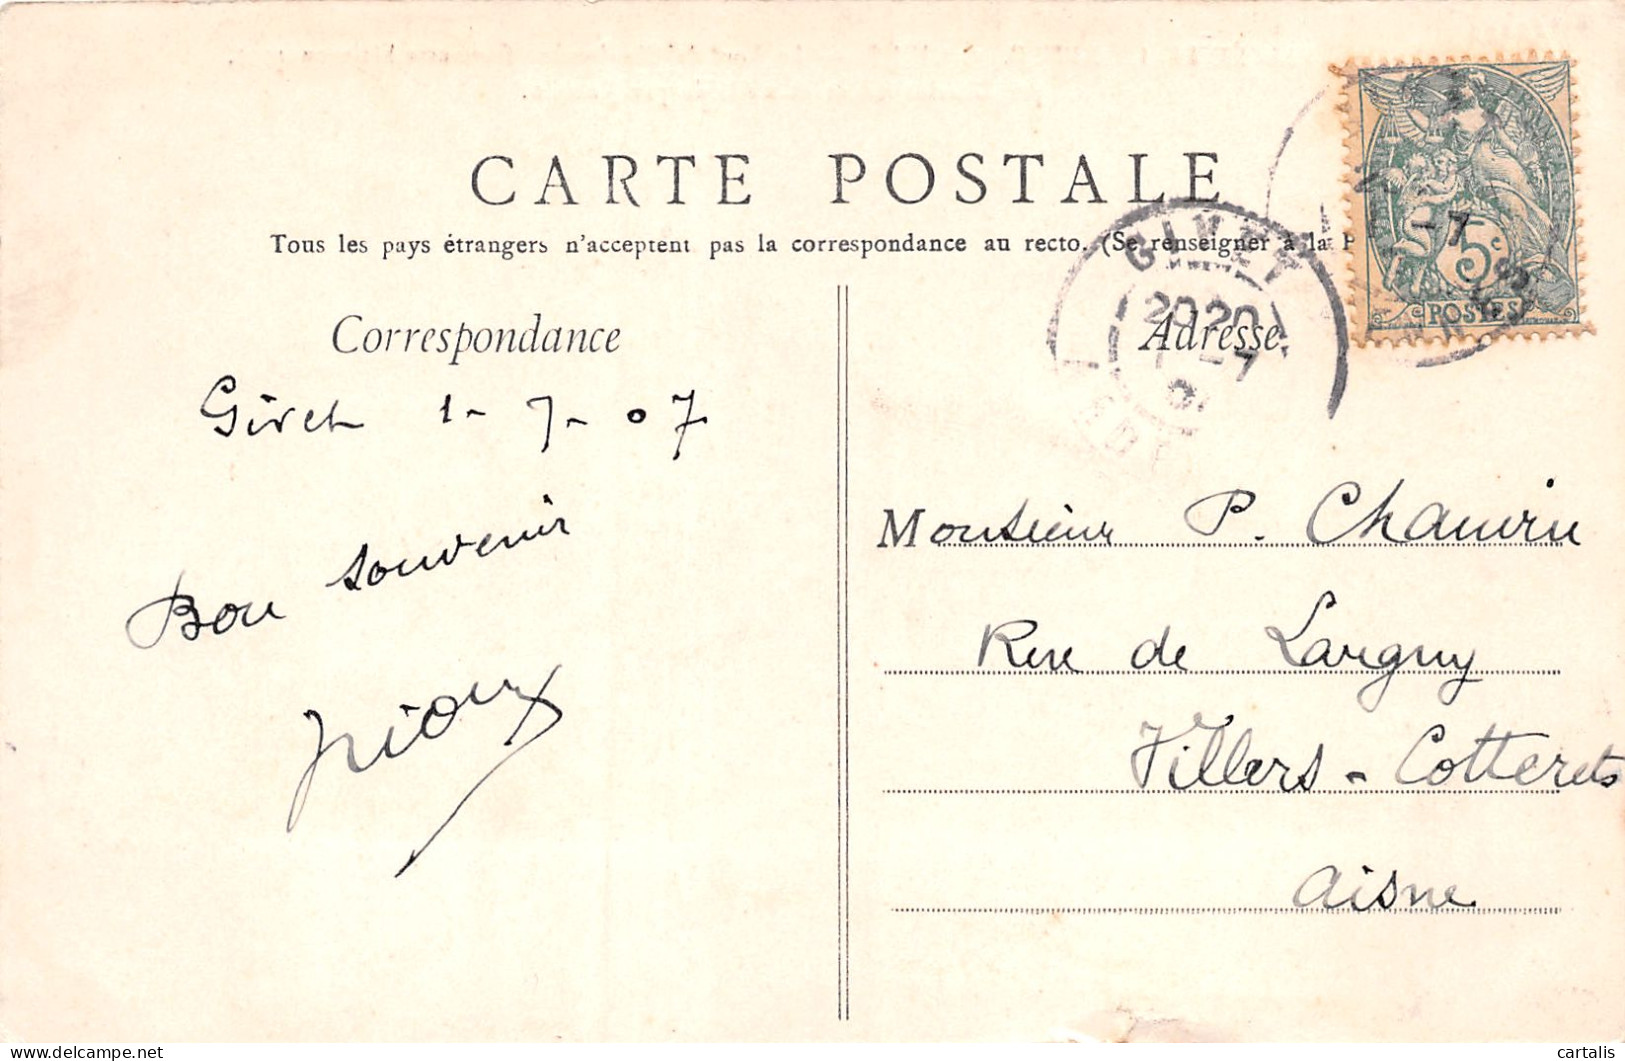 CARTE POSTALE
Tous les pays étrangers n'acceptent pas la correspondance au recto. (Se renseigner à la P
Correspondance
Givet 1-7-07
Bon souvenir
Adresse
Monsieur P. Chauvin
Rue de Largny
Villers-Cotterets
Aisne
GIVET
20 20
1 -7
-7
5c
POSTES
cartalis